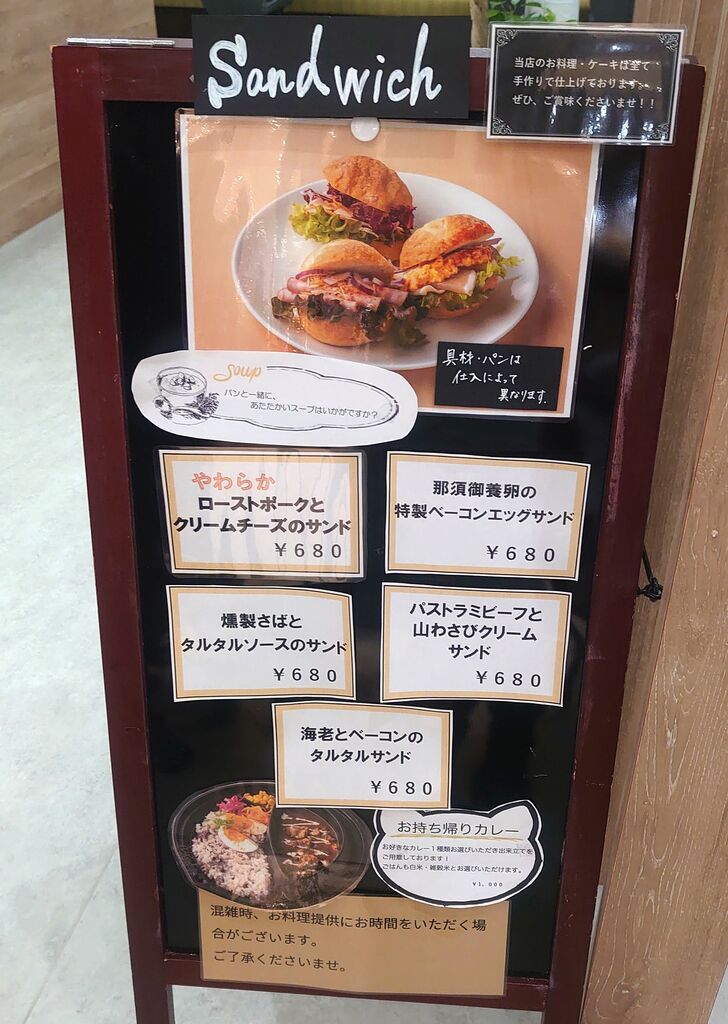 Sandwich
当店のお料理・ケーキは全て
手作りで仕上げております。
ぜひ、ご賞味くださいませ！！
具材・パンは
仕入によって
異なります。
Soup
パンと一緒に、
あたたかいスープはいかがですか？
やわらか
ローストポークと
クリームチーズのサンド
￥680
那須御養卵の
特製ベーコンエッグサンド
￥680
燻製さばと
タルタルソースのサンド
￥680
パストラミビーフと
山わさびクリーム
サンド
￥680
海老とベーコンの
タルタルサンド
￥680
お持ち帰りカレー
お好きなカレー１種類お選びいただき出来立てを
ご用意しております！
ごはんも白米・雑穀米とお選びいただけます。
￥1,000
混雑時、お料理提供にお時間をいただく場
合がございます。
ご了承くださいませ。